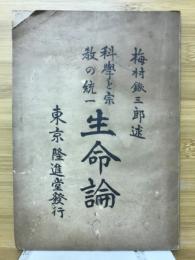 梅村鐵三郎述
科學と宗
教の統一
生命論
東京隆進堂發行